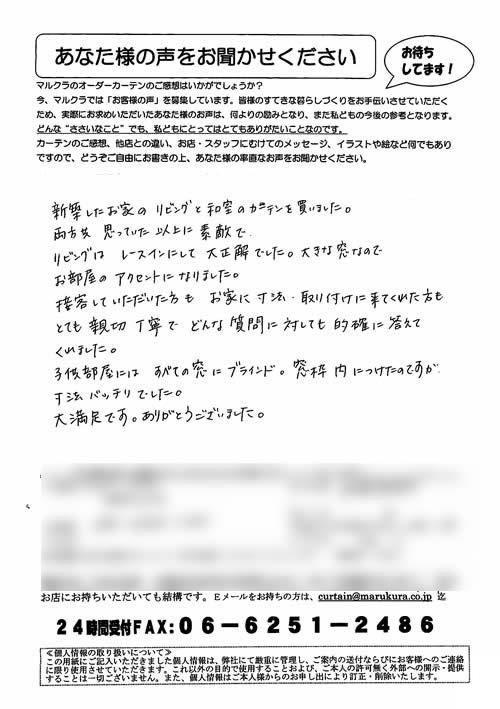 あなた様の声をお聞かせください
お待ち
してます!
マルクラのオーダーカーテンのご感想はいかがでしょうか?
今、マルクラでは「お客様の声」を募集しています。皆様のすてきな暮らしづくりをお手伝いさせていただく
ため、実際にお求めいただいたあなた様のお声は、何よりの励みとなり、また私どもの今後の参考となります。
どんな“ささいなこと”でも、私どもにとってはとてもありがたいことなのです。
カーテンのご感想、他店との違い、お店・スタッフにむけてのメッセージ、イラストや絵など何でもあり
ですので、どうぞご自由にお書きの上、あなた様の率直なお声をお聞かせください。
新築したお家の リビングと和室のカーテンを買いました。
両方共 思っていた以上に素敵で
リビングは レースインにして 大正解でした。大きな窓なので
お部屋の アクセントになりました。
接客していただいた方も お家に寸法・取り付けに来てくれた方も
とても 親切 丁寧で どんな 質問に対しても 的確に答えて
くれました。
子供部屋には すべての窓にブラインド。窓枠内につけたのですが
寸法バッチリでした。
大満足です。ありがとうございました。
お店にお持ちいただいても結構です。Eメールをお持ちの方は、curtain@marukura.co.jp 迄
24時間受付FAX:06-6251-2486
≪個人情報の取り扱いについて≫
この用紙にご記入いただきました個人情報は、弊社にて厳重に管理し、ご案内の送付ならびにお客様へのご連絡
に限り使用させていただきます。これ以外の目的で使用することおよび、ご本人の許可無く外部への開示・提供
することは一切ございません。また、個人情報はご本人様からのお申し出により訂正・削除いたします。